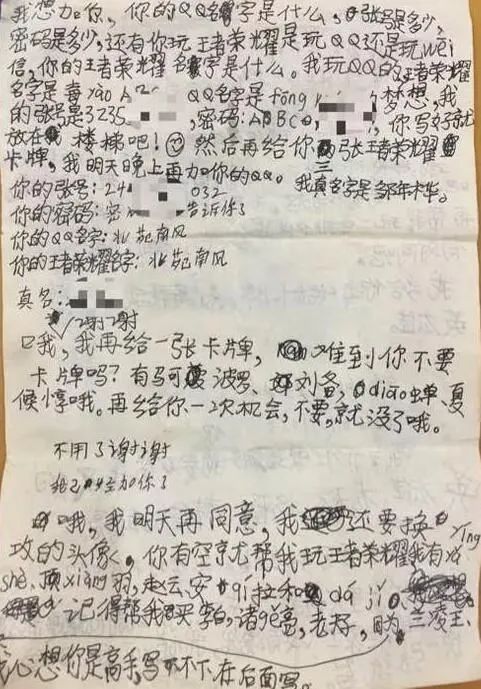 我想加你，你的QQ名字是什么，张号是多少，
密码是多少，还有你玩王者荣耀是玩QQ还是玩wēi
信，你的王者荣耀名字是什么。我玩QQ的王者荣耀
名字是 yào QQ名字是fēng 梦想，我
的张号是3235 ，密码：ABC ，你写好就
放在楼梯吧！然后再给你三张王者荣耀
卡牌，我明天晚上再加你的QQ。我真名字是 年华。
你的张号：24 032
你的密码：密 告诉你了
你的QQ名字：北苑南风
你的王者荣耀名字：北苑南风
真名：
谢谢
哦，我再给一张卡牌，难到你不要
卡牌吗？有马可波罗、刘备，diāo蝉、夏
候惇哦。再给你一次机会，不要，就没了哦。
不用了谢谢
我已经加你了
哦，我明天再同意，我还要换yīng
政的头像，你有空就帮我玩王者荣耀我有yà
shè，项xiàng羽，赵云，安qí拉和dá jǐ、
记得帮我买李白，诸gě亮，老夫， 兰凌王、
心想你是高手，写不下，在后面写。